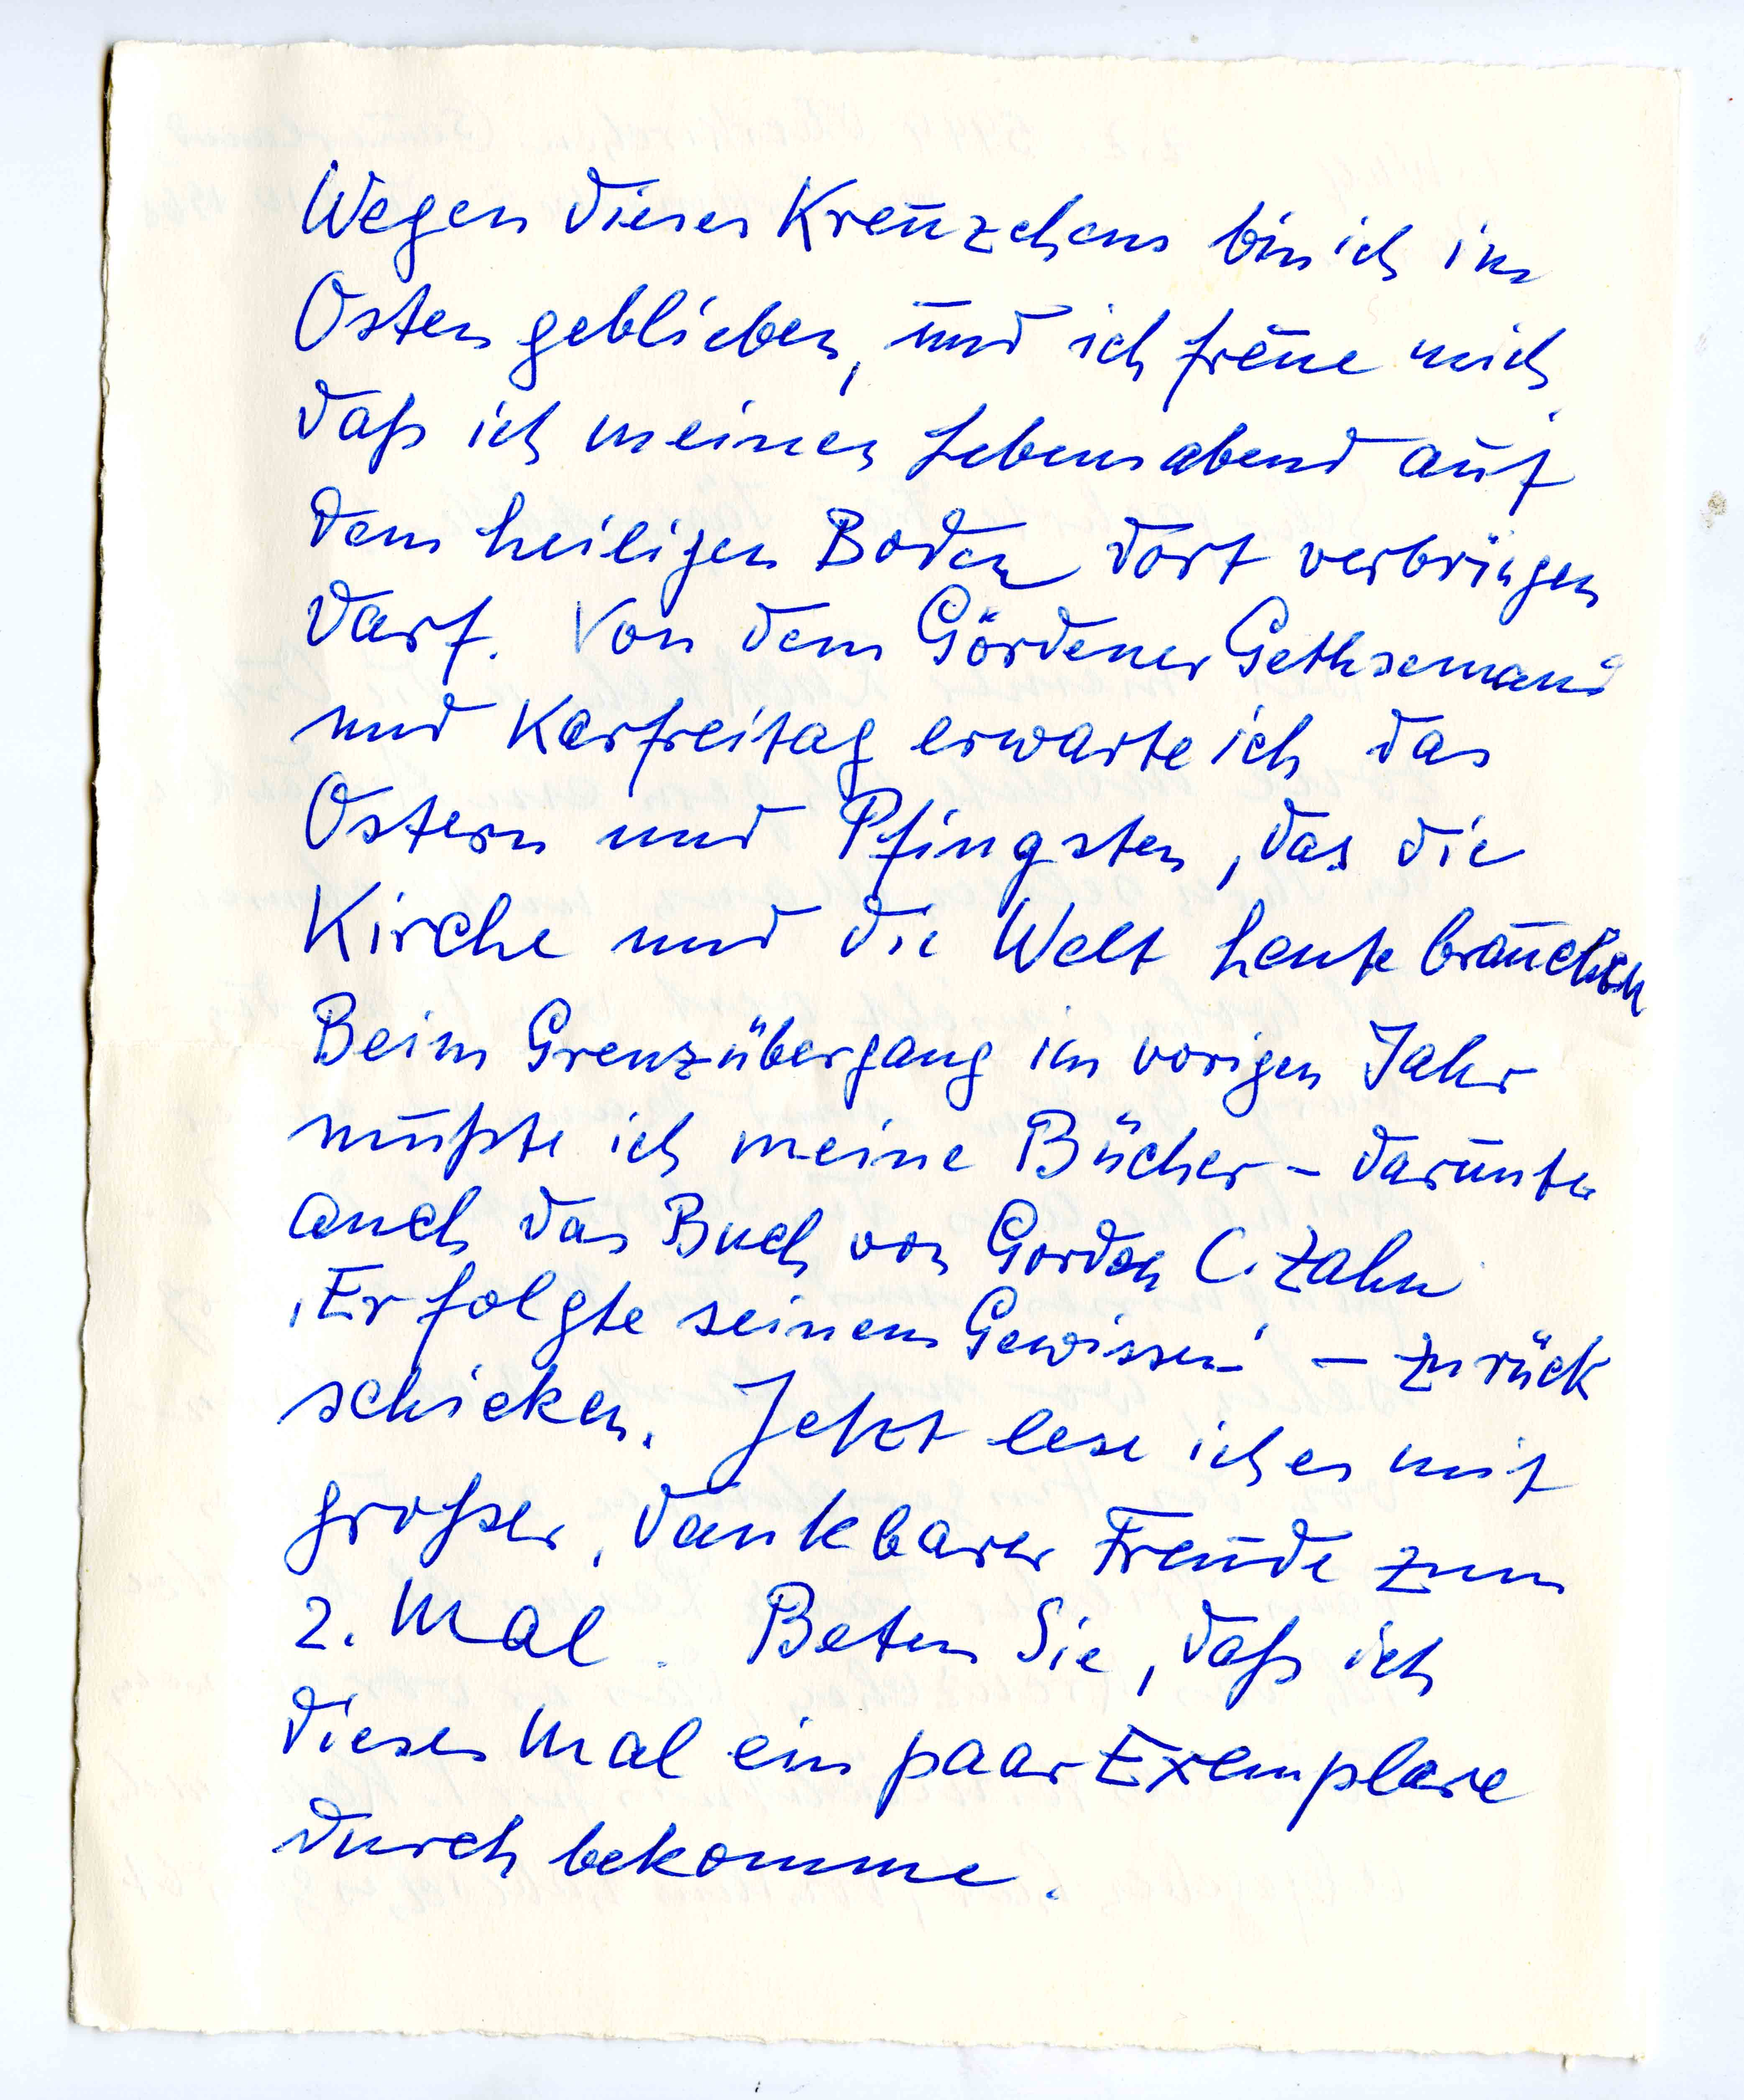 Wegen dieses Kreuzchens bin ich im
Osten geblieben, und ich freue mich,
daß ich meinen Lebensabend auf
dem heiligen Boden dort verbringen
darf. Von dem Gördener Gethsemani
und Karfreitag erwarte ich das
Ostern und Pfingsten, das die
Kirche und die Welt heute brauchen
Beim Grenzübergang im vorigen Jahr
mußte ich meine Bücher – darunter
auch das Buch von Gordon C. Zahn
‚Er folgte seinem Gewissen‘ – zurück
schicken. Jetzt lese ich es mit
großer, dankbarer Freude zum
2. Mal. Beten Sie, daß ich
dieses Mal ein paar Exemplare
durch bekomme.